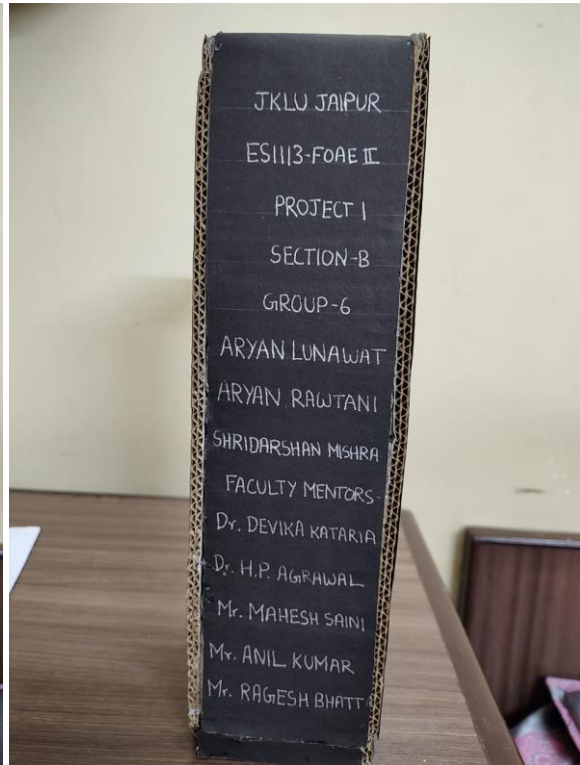 JKLU JAIPUR
ES1113-FOAE II
PROJECT 1
SECTION-B
GROUP-6
ARYAN LUNAWAT
ARYAN RAWTANI
SHRIDARSHAN MISHRA
FACULTY MENTORS-
Dr. DEVIKA KATARIA
Dr. H.P. AGRAWAL
Mr. MAHESH SAINI
Mr. ANIL KUMAR
Mr. RAGESH BHATT